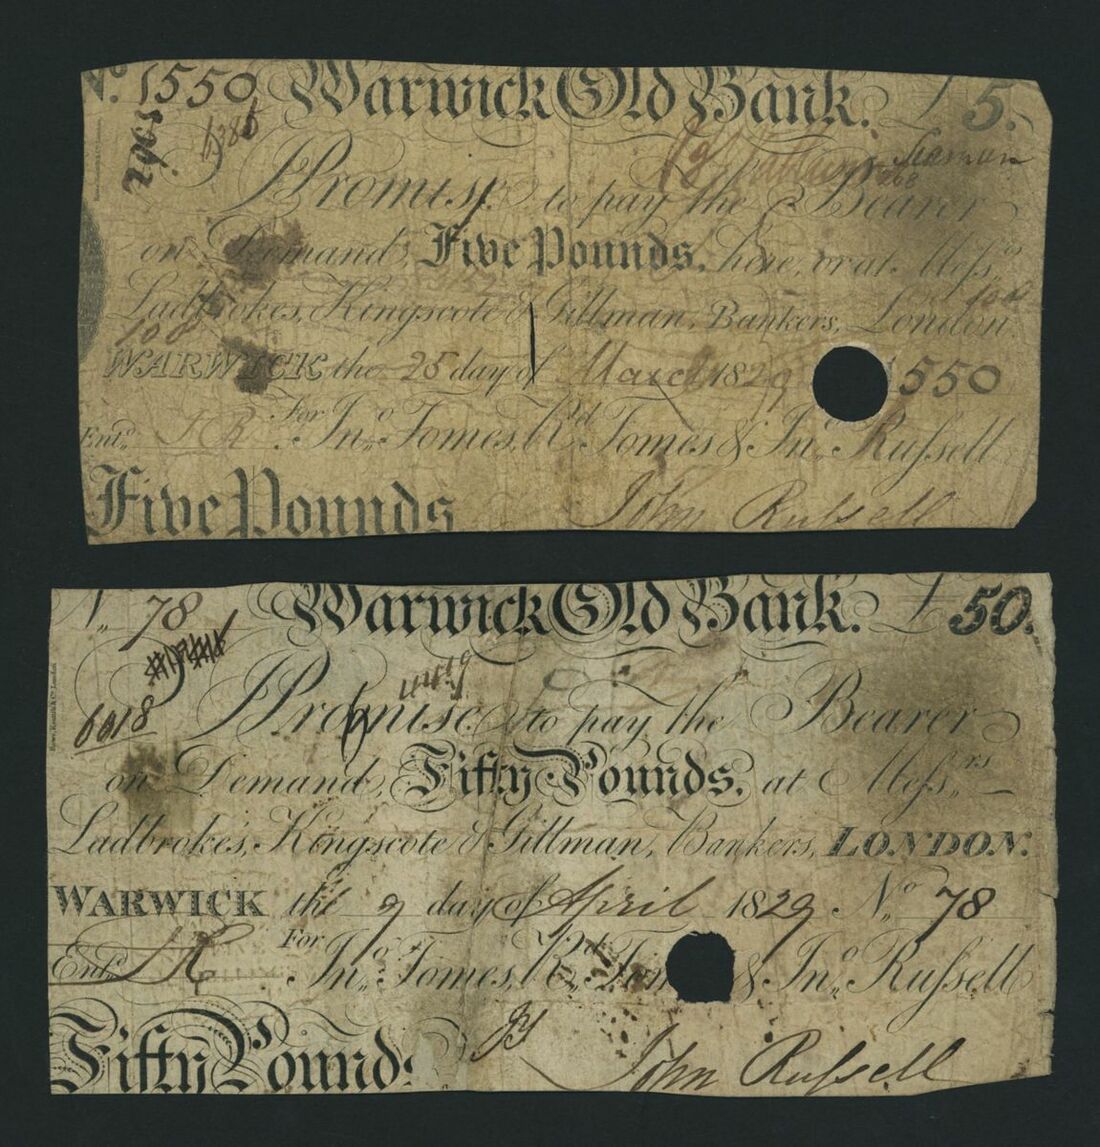 No. 1550 Warwick Old Bank. £5.
2905
I Promise to pay the Bearer
on Demand, Five Pounds, here, or at Mefs.rs
Ladbrokes, Kingscote & Gillman, Bankers, London.
108 108
WARWICK the 25 day of March 1829 1550
For Jno. Tomes, Rd. Tomes & Jno. Rufsell
Entd. JR
Five Pounds John Rufsell
No. 78 Warwick Old Bank. £50.
6018
I Promise to pay the Bearer
on Demand, Fifty Pounds, at Mefs.rs
Ladbrokes, Kingscote & Gillman, Bankers, LONDON.
WARWICK the 9 day of April 1829 No. 78
For Jno. Tomes, Rd. Tom & Jno. Rufsell
Entd. JR
Fifty Pounds John Rufsell